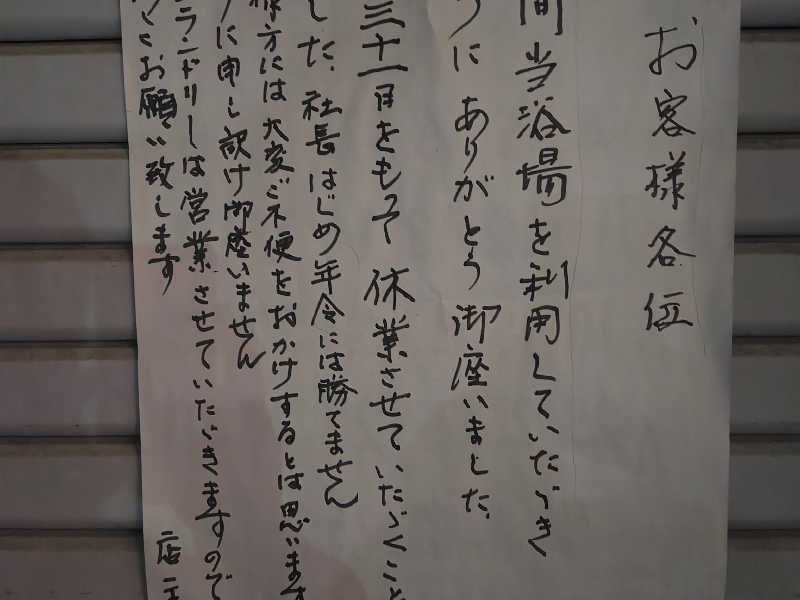 お客様各位
間当浴場を利用していただき
うにありがとう御座いました。
三十一日をもって休業させていただくこと
した、社長はじめ年令には勝てません
様方には大変ご不便をおかけするとは思います
に申し訳け御座いません
ランドリーは営業させていただきますので
しくお願い致します
店主